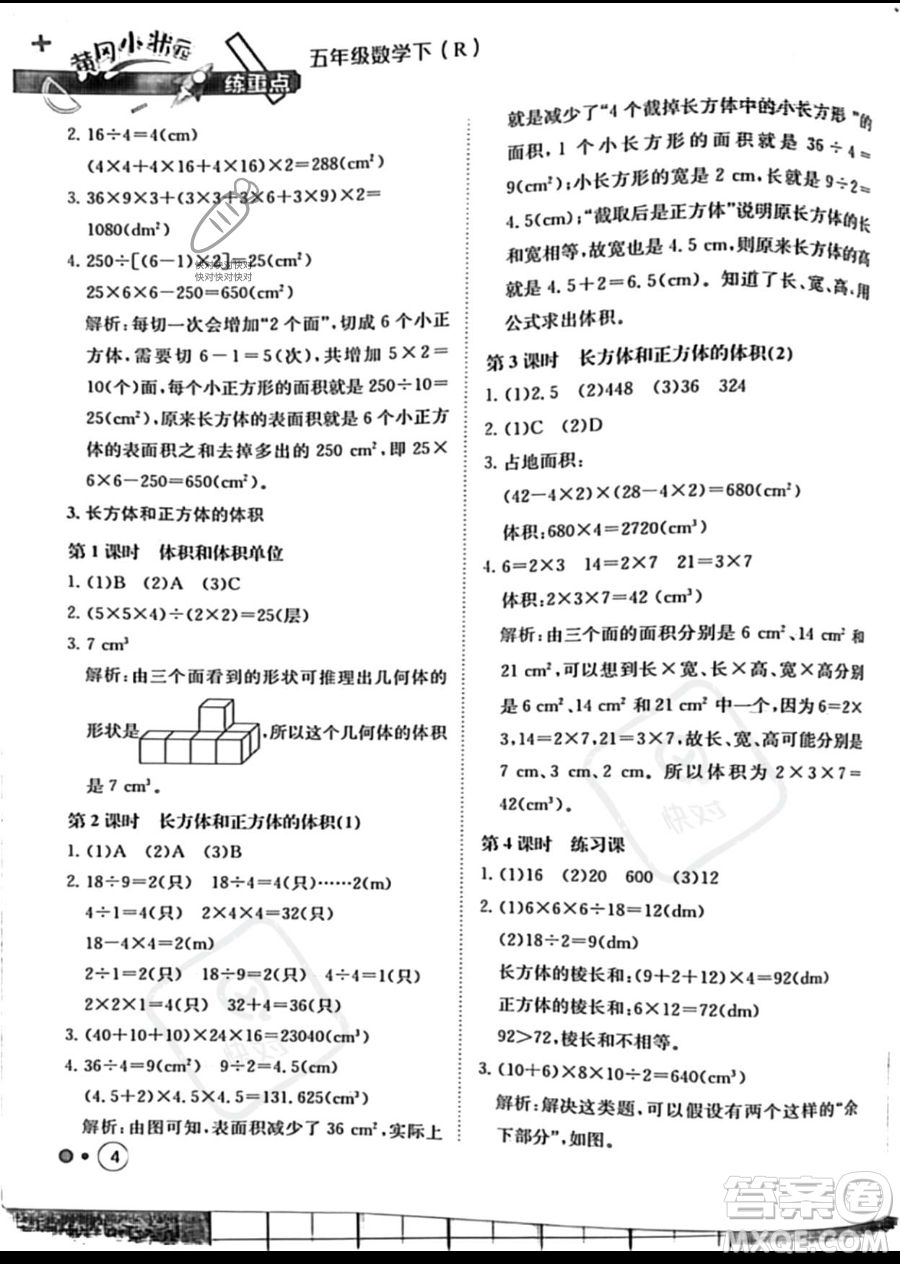 黄冈小状元
练重点
五年级数学下(R)
2. 16÷4=4(cm)
(4×4+4×16+4×16)×2=288(cm²)
3. 36×9×3+(3×3+3×6+3×9)×2=
1080(dm²)
4. 250÷[(6-1)×2]=25(cm²)
快对快对快对
快对快对快对
25×6×6-250=650(cm²)
解析:每切一次会增加“2个面”,切成6个小正
方体,需要切6-1=5(次),共增加5×2=
10(个)面,每个小正方形的面积就是250÷10=
25(cm²),原来长方体的表面积就是6个小正方
体的表面积之和去掉多出的250 cm²,即25×
6×6-250=650(cm²)。
3. 长方体和正方体的体积
第1课时 体积和体积单位
1. (1)B (2)A (3)C
2. (5×5×4)÷(2×2)=25(层)
3. 7 cm³
解析:由三个面看到的形状可推理出几何体的
形状是 ,所以这个几何体的体积
是7 cm³。
第2课时 长方体和正方体的体积(1)
1. (1)A (2)A (3)B
2. 18÷9=2(只) 18÷4=4(只)……2(m)
4÷1=4(只) 2×4×4=32(只)
18-4×4=2(m)
2÷1=2(只) 18÷9=2(只) 4÷4=1(只)
2×2×1=4(只) 32+4=36(只)
3. (40+10+10)×24×16=23040(cm³)
4. 36÷4=9(cm²) 9÷2=4.5(cm)
(4.5+2)×4.5×4.5=131.625(cm³)
解析:由图可知,表面积减少了36 cm²,实际上
4
就是减少了“4个截掉长方体中的小长方形”的
面积,1个小长方形的面积是36÷4=
9(cm²);小长方形的宽是2 cm,长就是9÷2=
4.5(cm);“截取后是正方体”说明原长方体的长
和宽相等,故宽也是4.5 cm,则原来长方体的高
就是4.5+2=6.5(cm)。知道了长、宽、高,用
公式求出体积。
第3课时 长方体和正方体的体积(2)
1. (1)2.5 (2)448 (3)36 324
2. (1)C (2)D
3. 占地面积:
(42-4×2)×(28-4×2)=680(cm²)
体积:680×4=2720(cm³)
4. 6=2×3 14=2×7 21=3×7
体积:2×3×7=42(cm³)
解析:由三个面的面积分别是6 cm²、14 cm²和
21 cm²,可以想到长×宽、长×高、宽×高分别
是6 cm²、14 cm²和21 cm²中一个,又因为6=2×
3,14=2×7,21=3×7,故长、宽、高可能分别
为7 cm、2 cm、3 cm。所以体积为2×3×7=
42(cm³)。
快对
第4课时 练习课
1. (1)16 (2)20 600 (3)12
2. (1)6×6×6÷18=12(dm)
(2)18÷2=9(dm)
长方体的棱长和:(9+2+12)×4=92(dm)
正方体的棱长和:6×12=72(dm)
92>72,棱长和不相等。
3. (10+6)×8×10÷2=640(cm³)
解析:解决这类题,可以像前两个这样的“余
下部分”,如图。
快对
答案卷
MXQE.COM